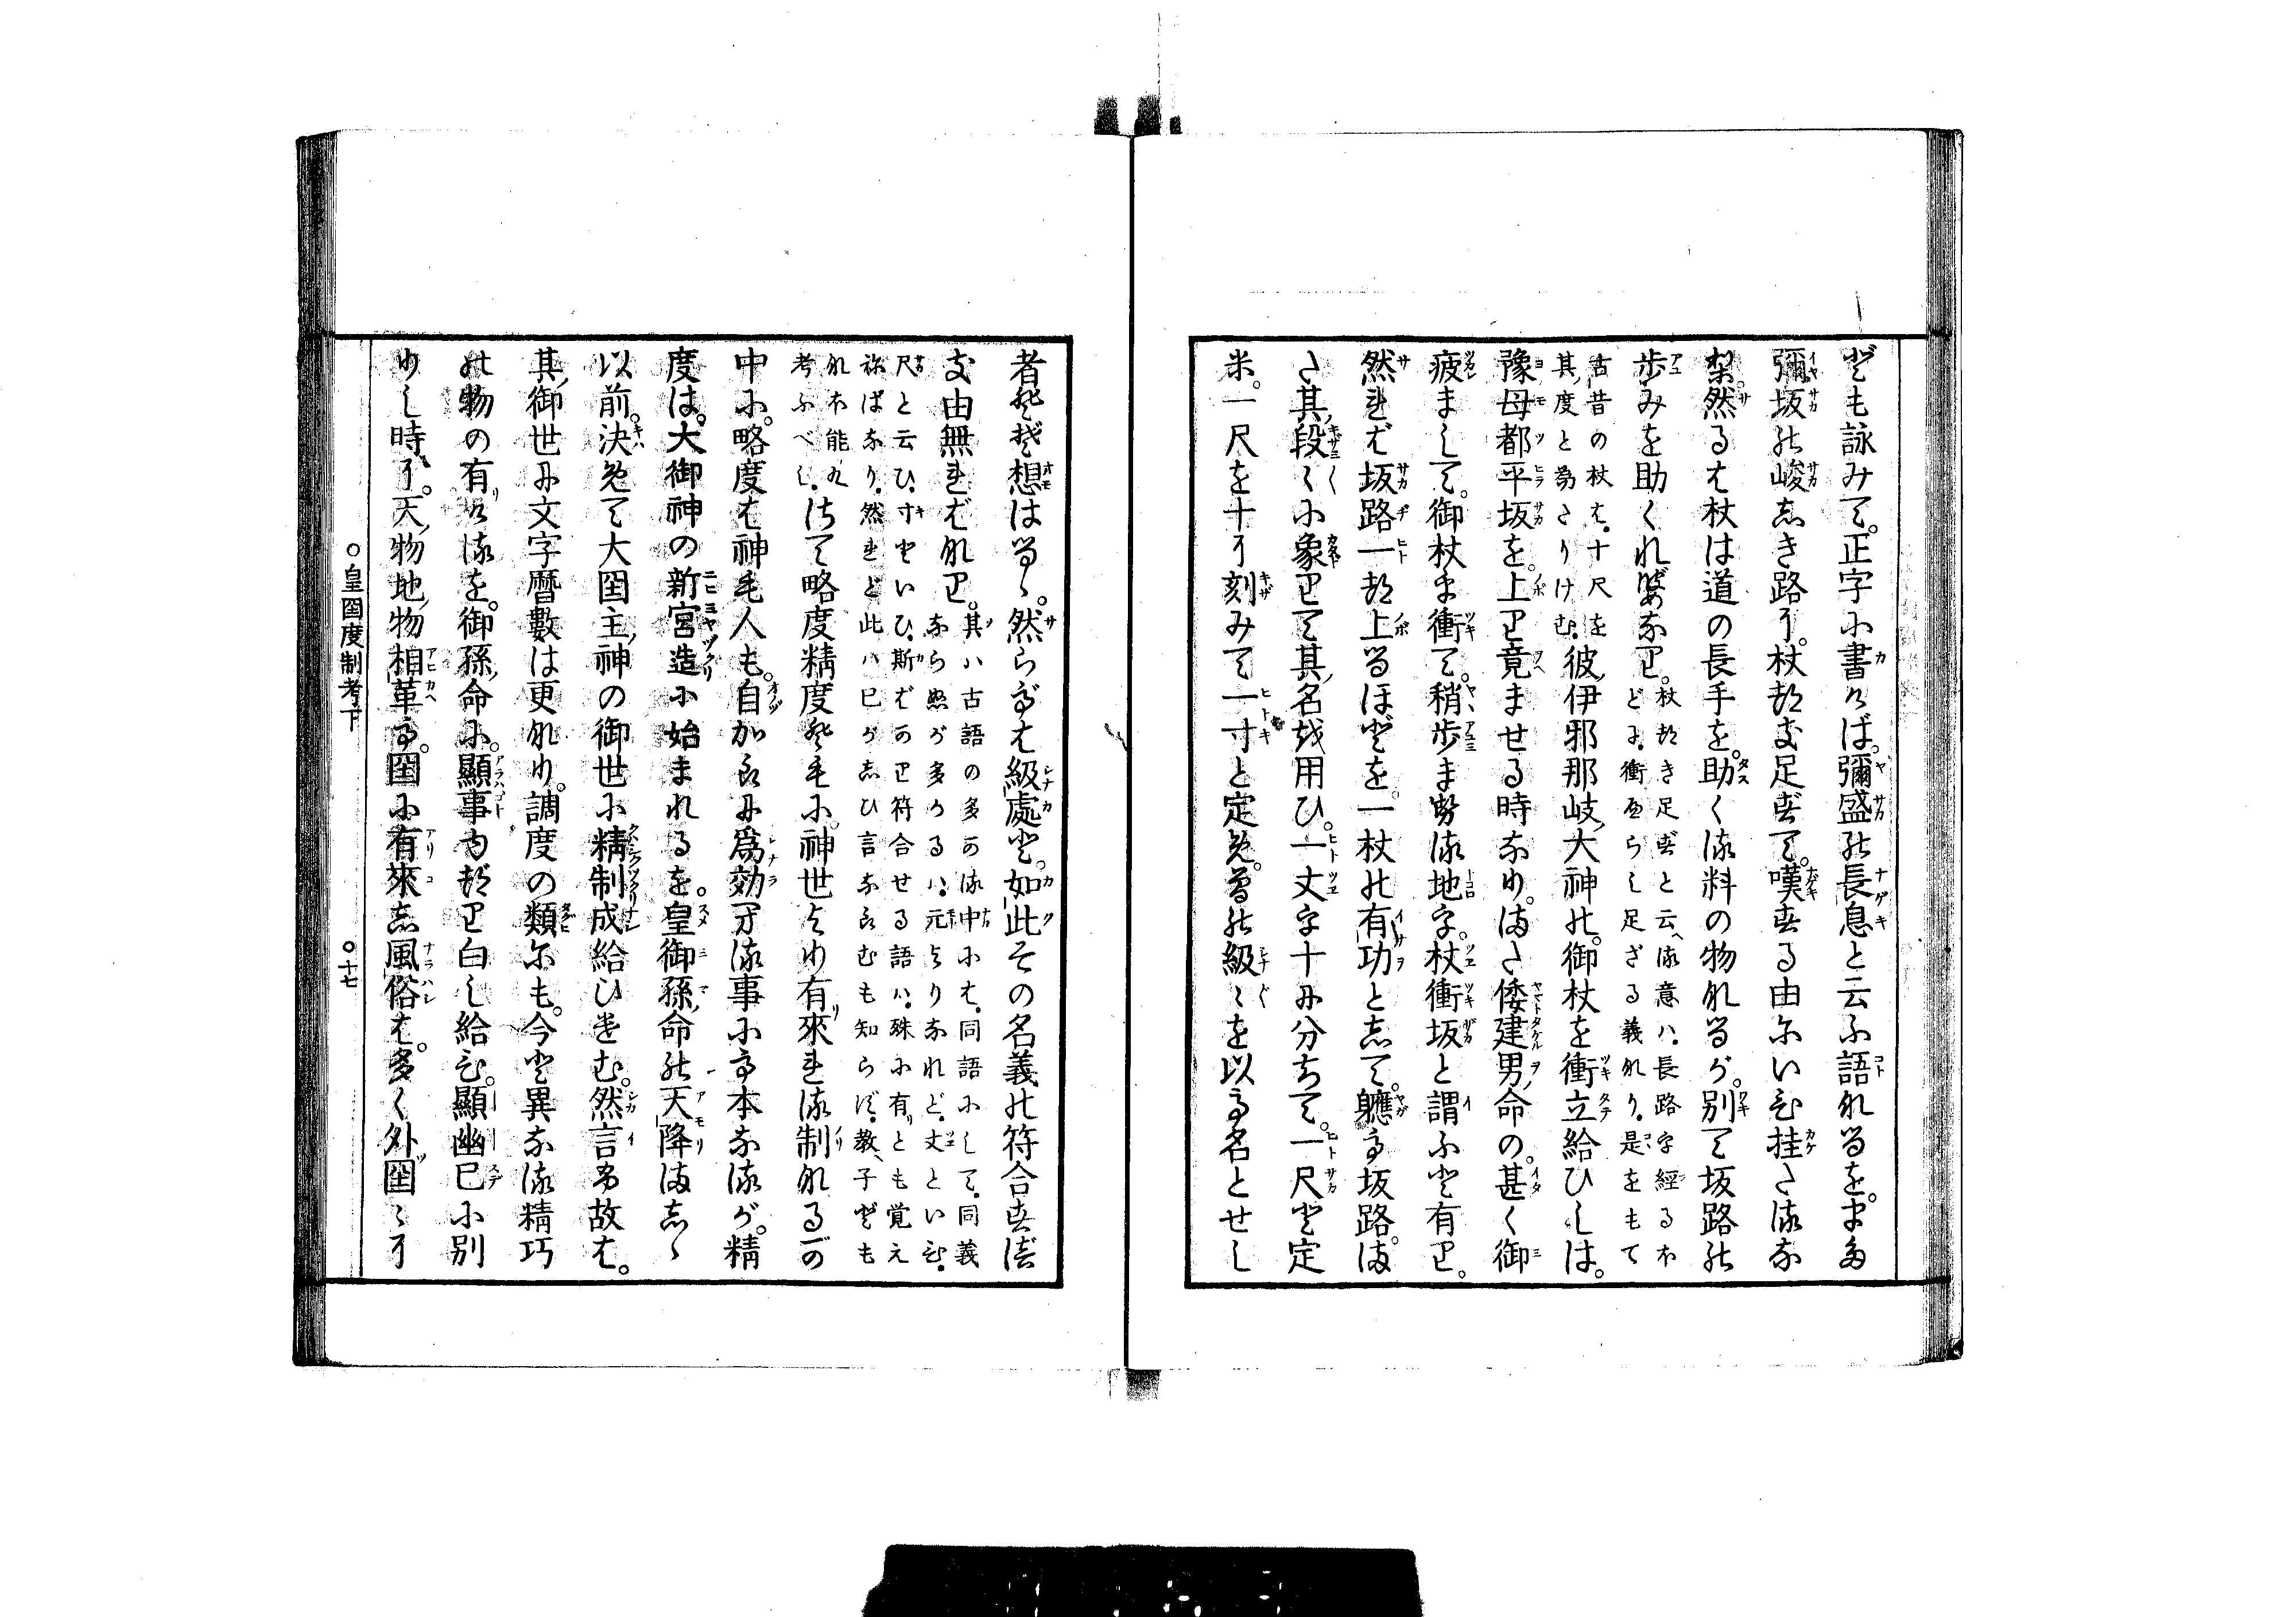 ども詠みて。正字に書けば。彌盛の長息と云ふ語なるを。また
彌坂の峻しき路に。杖つき足ずて。嘆する由にいひ挂たるな
梨。然るは杖は道の長手を。助くる料の物なるが。別て坂路の
歩みを助くればなり。杖つき足ずと云る意ハ、長路を經るほ
どに、衝あらし足ざる義なり、是をもて
古昔の杖は、十尺を
其度と爲たりけむ、彼伊邪那岐大神の。御杖を衝立給ひしは。
豫母都平坂を。上り竟ませる時なり。また倭建男命の。甚く御
疲まして。御杖を衝て。稍歩ませる地を。杖衝坂と謂ふと有り。
然れば坂路一つ上るほどを。一杖の有功として。軈て坂路。ま
た其段〻に象りて其名を用ひ。一丈を十に分ちて。一尺と定
米。一尺を十に刻みて一寸と定め。その級〻を以て名とせし
者ぞと想はるゝ。然らでは級處と。如此その名義の符合すべ
き由無ればなり。其ハ古語の多かる中には、同語にして、同義
ならぬが多かるハ、元よりなれど、丈といひ、
尺と云ひ、寸といひ、斯ばかり符合せる語ハ、殊に有とも覚え
ねばなり、然れど此ハ己がしひ言ならむも知らず、教子ども
なほ能九
考ふべし、はて略度精度ともに。神世より有來れる制なるが
中に。略度は神も人も。自からに爲効ひる事にて本なるが。精
度は。大御神の新宮造に始まれるを。皇御孫命の天降ましゝ
以前。決めて大国主神の御世に精制成給ひけむ。然言ふ故は。
其御世に文字暦數は更なり。調度の類にも。今と異なる精巧
の物の有けるを。御孫命に。顯事内つり白し給ひ。顯幽已に別
りし時に。天物地物相革る。国に有來し風俗は。多く外国〻に
○皇国度制考下
○十七